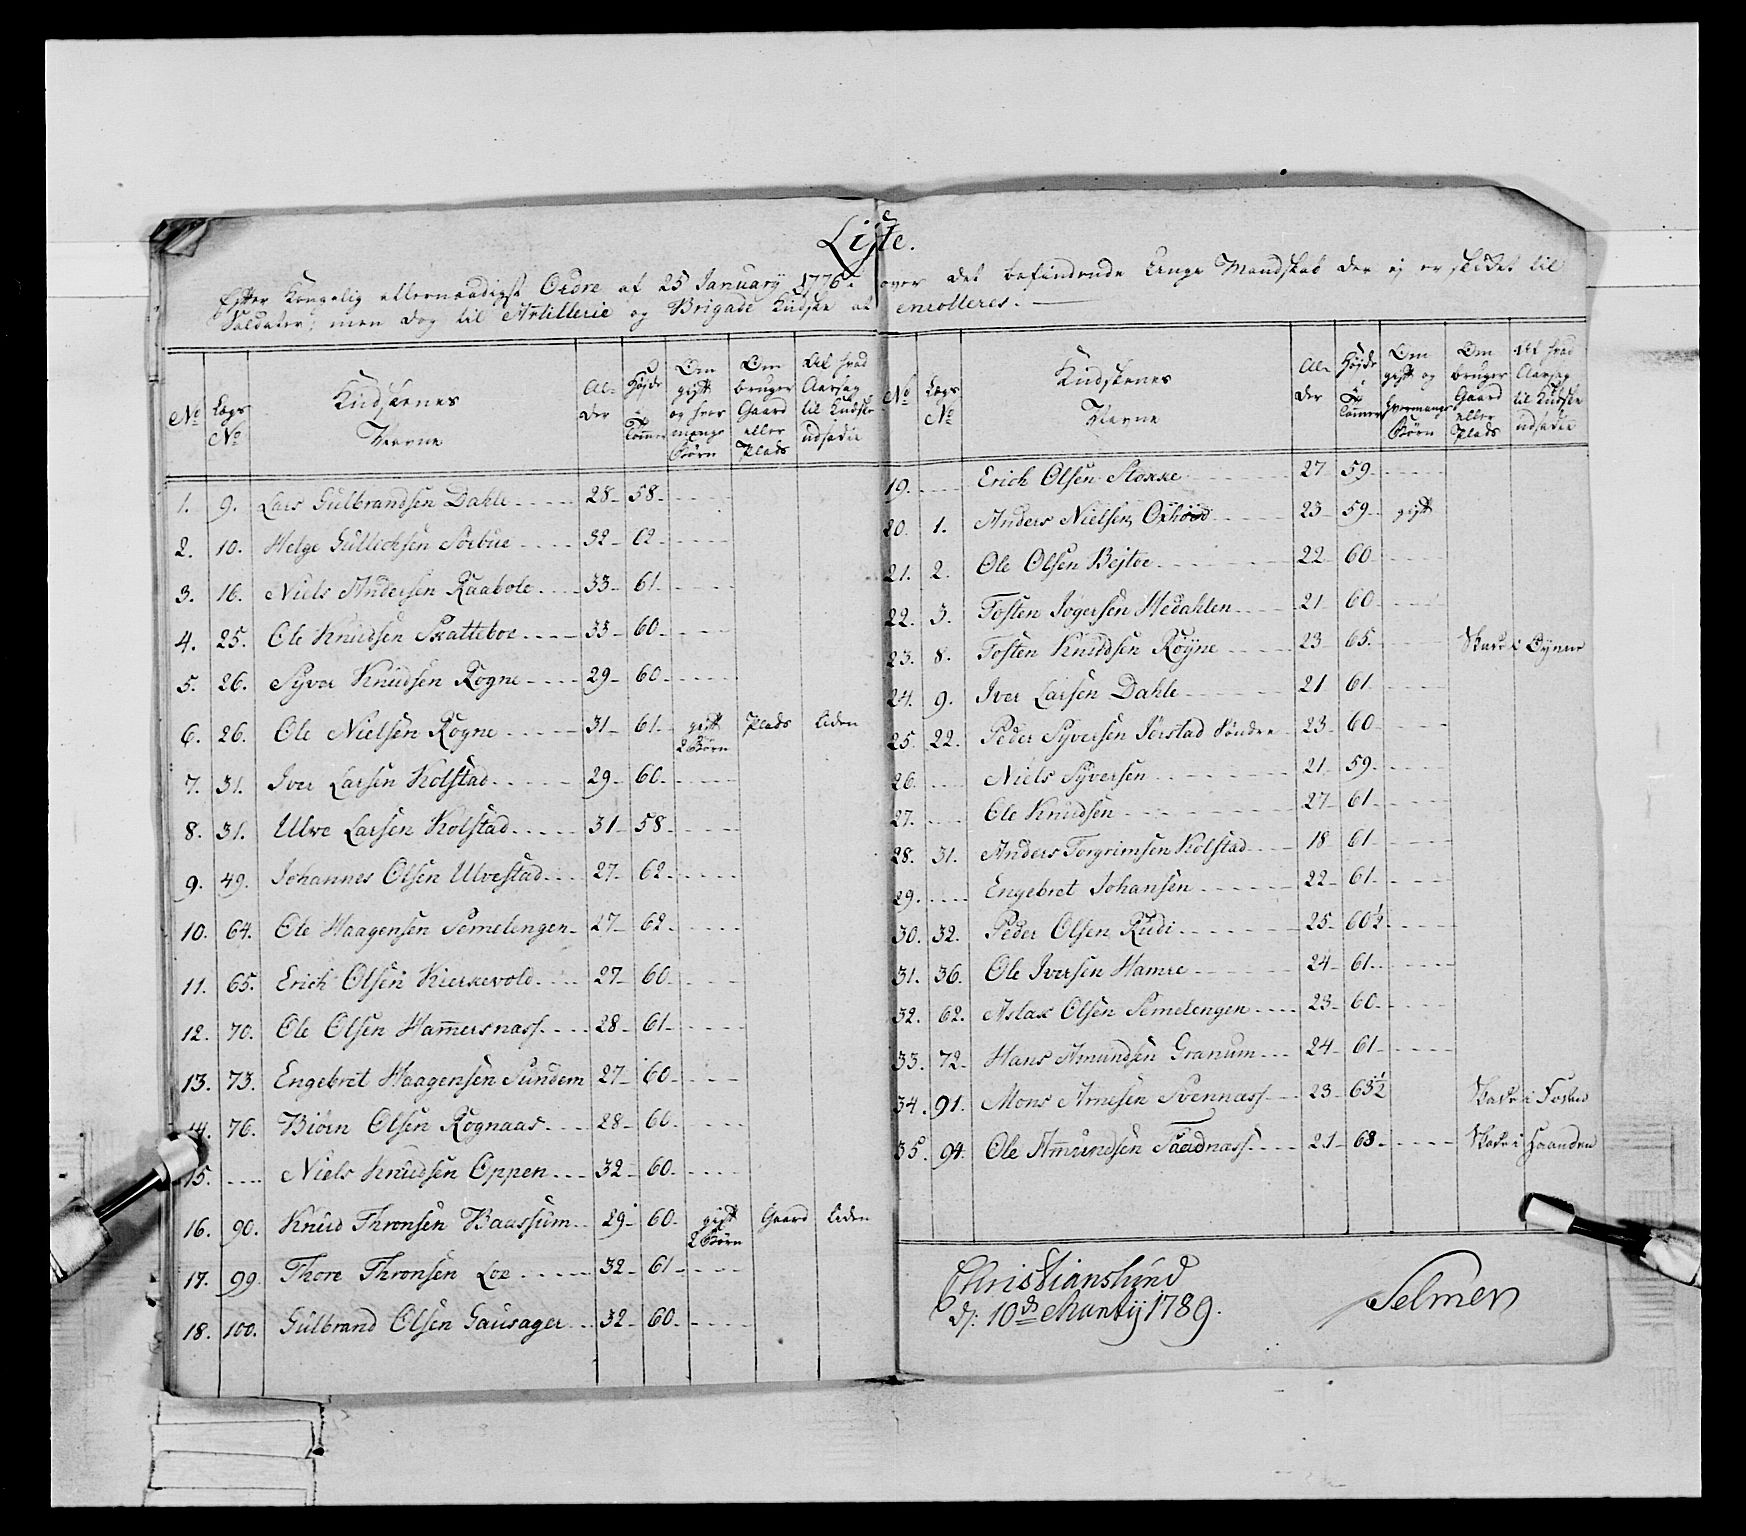 Liste.
Efter Kongelig allernaadigst Ordre af 25 January 1776. over det befindende unge Mandskab der ej er skikket til
Soldater; men dog til Artillerie og Brigade Kudske at enrolleres.
No
Lægs No
Kudskenes Navne
Al-der
Højde Tommer
Om gift og hvor mange Børn
Om bruger Gaard eller Plads
Af hvad Aarsag til Kudsk udsadt
1. 9. Lars Gulbrandsen Dahle 28 58
2. 10. Helge Gullichsen Sørbüe 32 62
3. 16. Niels Andersen Raabole 33 61
4. 25. Ole Knudsen Skatteboe 33 60
5. 26. Syver Knudsen Rogne 29 60
6. 26. Ole Nielsen Rogne 31 61 gift 2 Børn Plads liden
7. 31. Iver Larsen Kolstad 29 60
8. 31. Ulve Larsen Kolstad 31 58
9. 49. Johannes Olsen Ulvestad 27 62
10. 64. Ole Haagensen Semelengen 27 62
11. 65. Erich Olsen Kierkevold 27 60
12. 70. Ole Olsen Hamersnass 28 61
13. 73. Engebret Haagensen Sundem 27 60
14. 76. Biörn Olsen Rognaas 28 60
15. Niels Knudsen Oppen 32 60
16. 90. Knud Thronsen Baassum 29 60 gift 2 Børn Gaard liden
17. 99. Thore Thronsen Loe 32 61
18. 100. Gulbrand Olsen Gausager 32 60
No
Lægs No
Kudskenes Navne
Al-der
Højde Tommer
Om gift og hvormange Børn
Om bruger Gaard eller Plads
Af hvad Aarsag til Kudsk udsadt
19. Erich Olsen Stokke 27 59
20. 1. Anders Nielsen Oxhovd 23 59 gift
21. 2. Ole Olsen Bejtoe 22 60
22. 3. Tosten Jøgersen Hedahlen 21 60
23. 8. Tosten Knudsen Röyne 23 65 Skade i Öynne
24. 9. Iver Larsen Dahle 21 61
25. 22. Peder Syversen Jerstad Søndre 23 60
26. Niels Syversen 21 59
27. Ole Knudsen 27 61
28. 31. Anders Torgrimsen Kolstad 18 61
29. Engebret Johansen 22 61
30. 32. Peder Olsen Rudi 25 60½
31. 36. Ole Iversen Hamre 24 61
32. 62. Aslak Olsen Semelengen 23 60
33. 72. Hans Amundsen Granum 24 61
34. 91. Mons Arnesen Svennass 23 63½ Skade i Foden
35. 94. Ole Amundsen Faadnass 21 63 Skade i Haanden
Christianslund
d: 10de Marty 1789.
Selmer